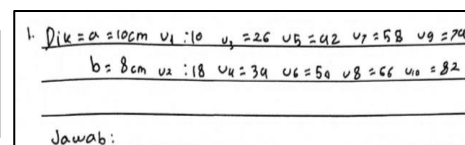 1. Dik = a = 10cm u1 : 10 u3 = 26 u5 = 42 u7 = 58 u9 = 74
b = 8cm u2 : 18 u4 = 34 u6 = 50 u8 = 66 u10 = 82
Jawab: